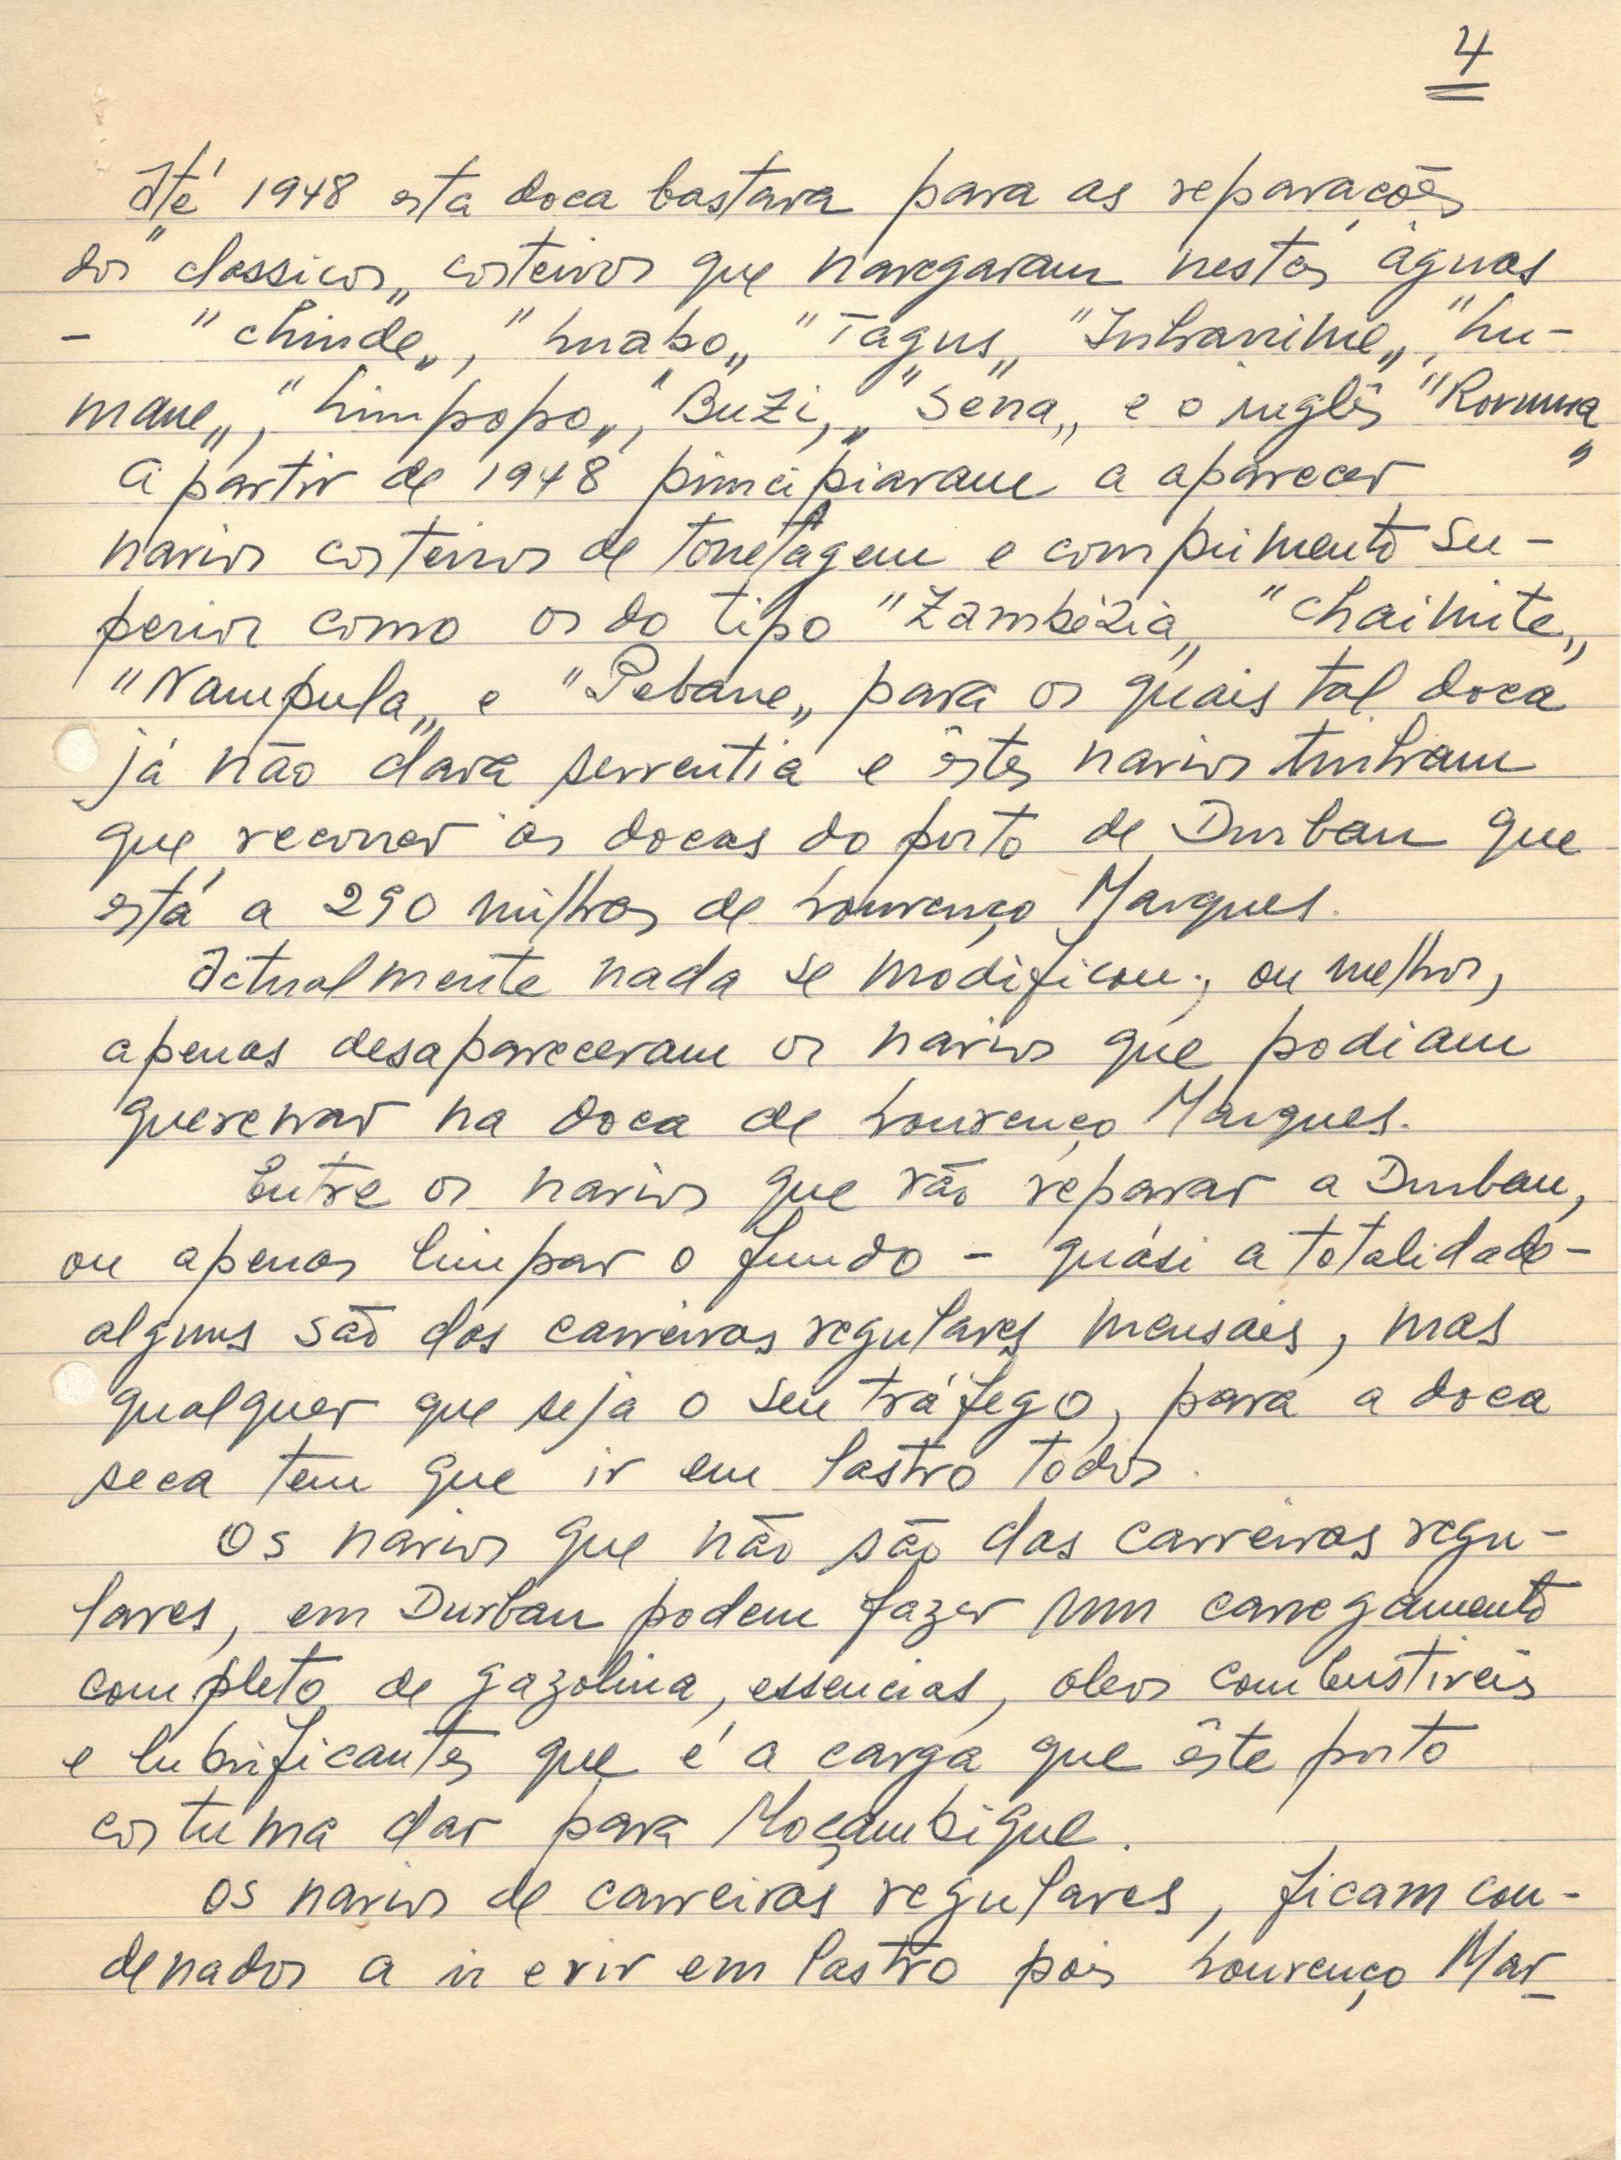 4
Até 1948 esta doca bastava para as reparações
dos "classicos„ costeiros que navegaram nestas águas
- "Chinde„, "Luabo„ "Tagus„ "Inharrime„, "Lu-
mane„, "Limpopo„, "Buzi„, "Sena„ e o inglês "Rovuma„
A partir de 1948 principiaram a aparecer
navios costeiros de tonelagem e comprimento su-
perior como os do tipo "Zambézia„ "Chaimite„
"Nampula„ e "Pebane„ para os quais tal doca
já não dava serventia e êstes navios tinham
que recorrer às docas do porto de Durban que
está a 290 milhas de Lourenço Marques.
Actualmente nada se modificou; ou melhor,
apenas desapareceram os navios que podiam
querenar na doca de Lourenço Marques.
Entre os navios que vão reparar a Durban,
ou apenas limpar o fundo - quási a totalidade -
alguns são das carreiras regulares mensais, mas
qualquer que seja o seu tráfego, para a doca
seca tem que ir em lastro todos.
Os navios que não são das carreiras regu-
lares, em Durban podem fazer um carregamento
completo de gazolina, essencias, oleos combustiveis
e lubrificantes que é a carga que êste porto
costuma dar para Moçambique.
Os navios de carreiras regulares, ficam con-
denados a ir e vir em lastro pois Lourenço Mar-